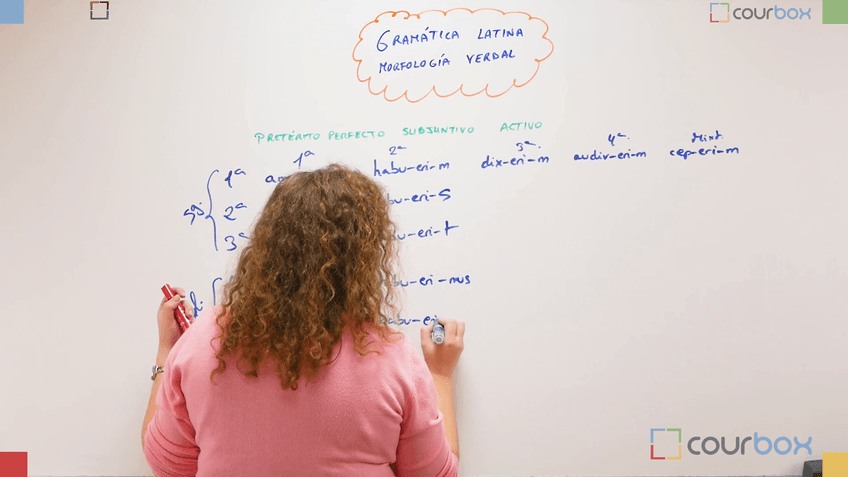 courbox
GRAMÁTICA LATINA
MORFOLOGÍA VERDAL
PRETÉRITO PERFECTO SUBJUNTIVO ACTIVO
1ª 2ª 3ª. 4ª. Mixt.
1ª habu-eri-m dix-eri-m audiv-eri-m cep-eri-m
sg 2ª bu-eri-s
3ª bu-eri-t
abu-eri-mus
habu-eri
courbox